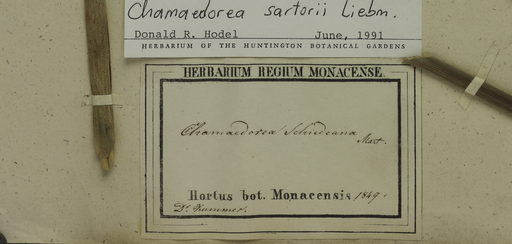 Chamaedorea sartorii Liebm.
Donald R. Hodel June, 1991
HERBARIUM OF THE HUNTINGTON BOTANICAL GARDENS
HERBARIUM REGIUM MONACENSE
Chamaedorea Schiedeana
Mart.
Hortus bot. Monacensis 1849.
Dr. Kummer.